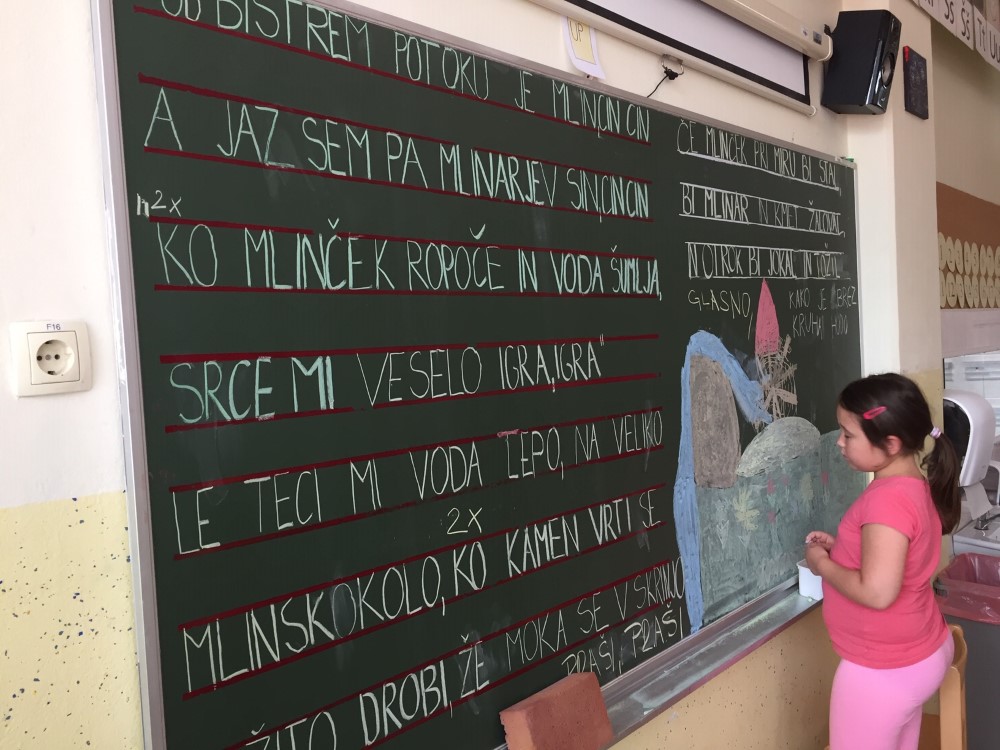 OB BISTREM POTOKU JE MLIN,CIN CIN
A JAZ SEM PA MLINARJEV SIN,CIN CIN
2x
KO MLINČEK ROPOČE IN VODA ŠUMLJA,
SRCE MI VESELO IGRA,IGRA"
LE TECI MI VODA LEPO, NA VELIKO
2X
MLINSKO KOLO, KO KAMEN VRTI SE
ŽITO DROBI, ŽE MOKA SE V SKRINJO
PRAŠI, PRAŠI
ČE MLINČEK PRI MIRU BI STAL,
BI MLINAR IN KMET ŽALOVAL,
IN OTROK BI JOKAL IN TOŽIL
GLASNO, KAKO JE BREZ
KRUHA HUDO
F16
OP
Ss Šš Tt